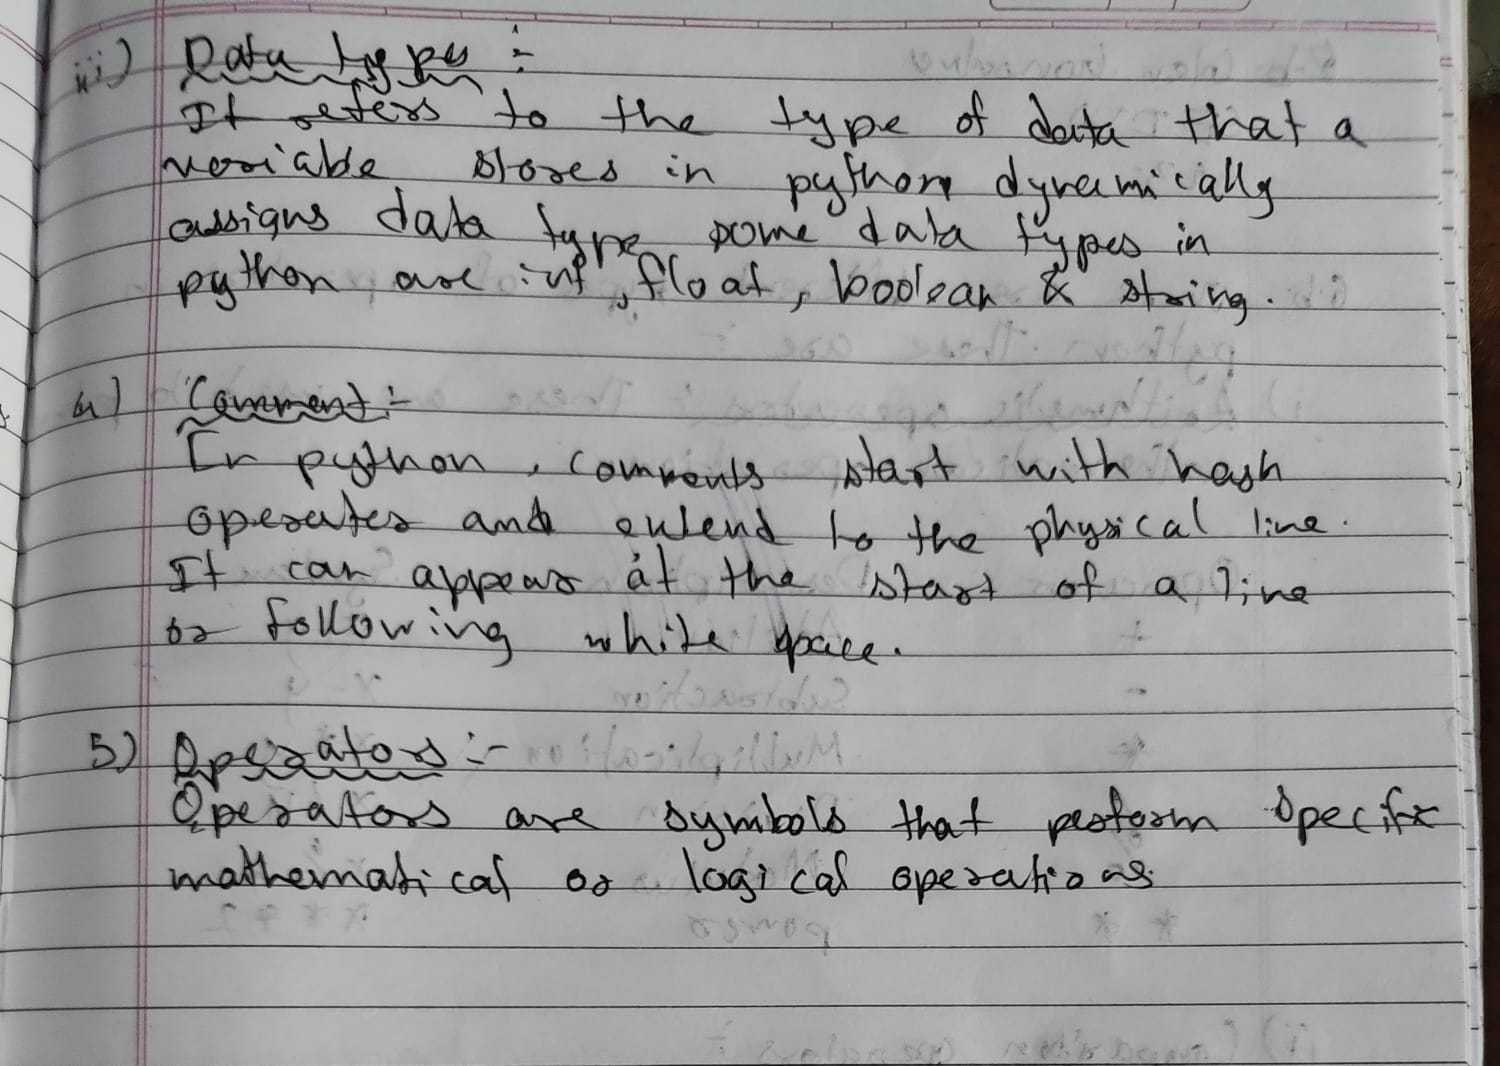 iii) Data types :-
It refers to the type of data that a
variable stores in python dynamically
assigns data type some data types in
python are int, float, boolean & string.
4) Comment :-
In python, comments start with hash
operates and extend to the physical line.
It can appear at the start of a line
or following white space.
5) Operators :-
Operators are symbols that perform specific
mathematical or logical operations